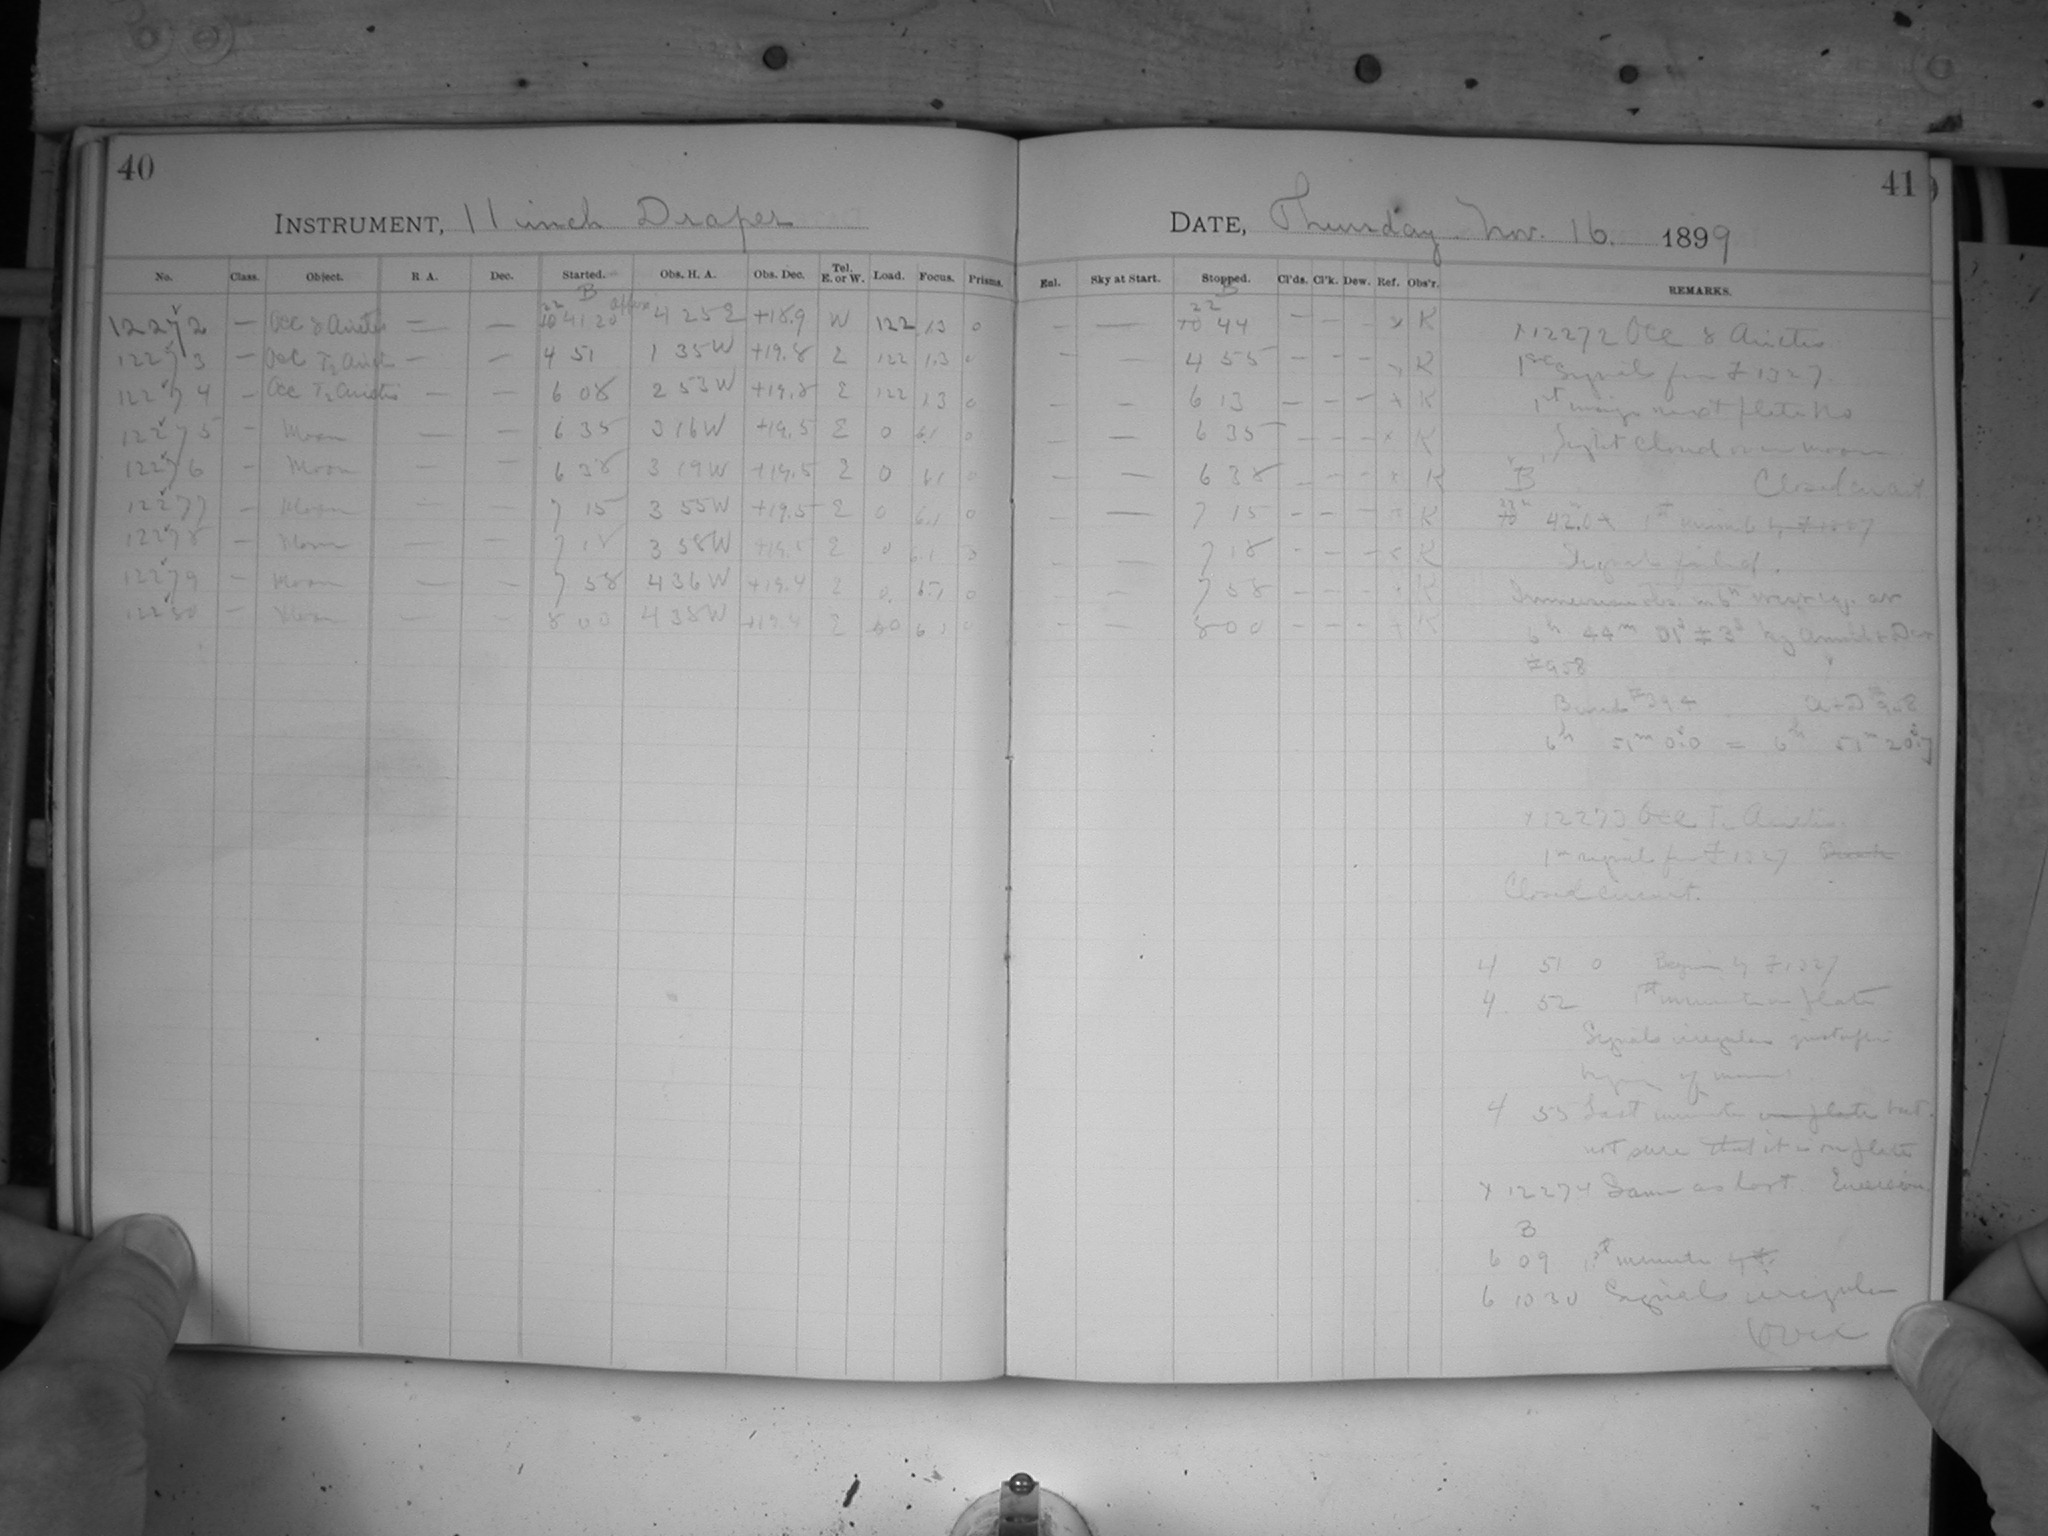 40
INSTRUMENT, 11 inch Draper
No. Class. Object. R A. Dec. Started. Obs. H. A. Obs. Dec. Tel. E. or W. Load. Focus. Prisms.
B
22 approx
12272 — Occ δ Arietis — — 10 41 20 4 25 E +18.9 W 122 13 0
12273 — Occ — — 4 51 1 35 W +19.8 E 122 13 0
12274 — Occ Arietis — — 6 08 2 53 W +19.8 E 122 13 0
12275 — Moon — — 6 35 3 16 W +19.5 E 0 6.1 0
12276 — Moon — — 6 38 3 19 W +19.5 E 0 6.1 0
12277 — Moon — — 7 15 3 55 W +19.5 E 0 6.1 0
12278 — Moon — — 7 18 3 58 W +19.5 E 0 6.1 0
12279 — Moon — — 7 58 4 36 W +19.4 E 0 6.1 0
12280 — Moon — — 8 00 4 38 W +19.4 E 0 6.1 0
41
DATE, Thursday Nov. 16. 1899
Enl. Sky at Start. Stopped. Cl'ds. Cl'k. Dew. Ref. Obs'r. REMARKS.
B
22
— — 10 44 — — — x K
— — 4 55 — — — x K
— — 6 13 — — — x K
— — 6 35 — — — x K
— — 6 38 — — — x K
— — 7 15 — — — x K
— — 7 18 — — — x K
— — 7 58 — — — x K
— — 8 00 — — — x K
x 12272 Occ δ Arietis
1st Signals from # 1327
1st next plate no
Light cloud over moon
B Closed circuit
22 10 42.0 1st minute by # 1327
Signals failed.
6h 44m 01s ± 3s by Arnold & Dent
# 958
Bond #394 A+D # 958
6h 51m 0s.0 = 6h 51m 20s.7
x 12273 Occ Arietis
1st signals from # 1327
Closed circuit.
4 51 0 Began by # 1327
4 52 1st minute on plate
Signals irregular
4 53 Last minute on plate but
not sure that it is on plate
x 12274 Same as last. Emersion
B
6 09 1st minute
6 10 30 Signals irregular
Over